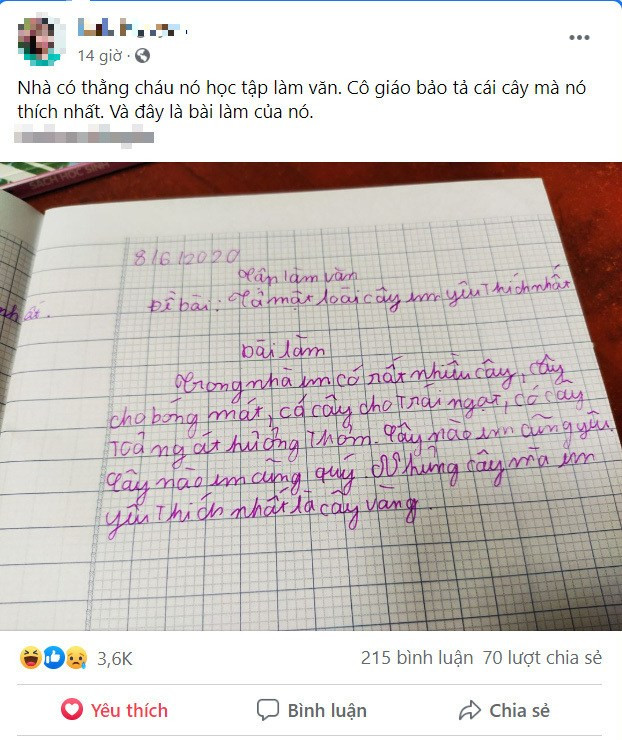 14 giờ
Nhà có thằng cháu nó học tập làm văn. Cô giáo bảo tả cái cây mà nó
thích nhất. Và đây là bài làm của nó.
8/6/2020
Tập làm văn
Đề bài: Tả một loài cây em yêu thích nhất
nhất.
Bài làm
Trong nhà em có rất nhiều cây, cây
cho bóng mát, có cây cho trái ngọt, có cây
toả ngát hưởng thơm. Cây nào em cũng yêu.
Cây nào em cũng quý. Nhưng cây mà em
yêu thích nhất là cây vàng.
3,6K
215 bình luận 70 lượt chia sẻ
Yêu thích
Bình luận
Chia sẻ